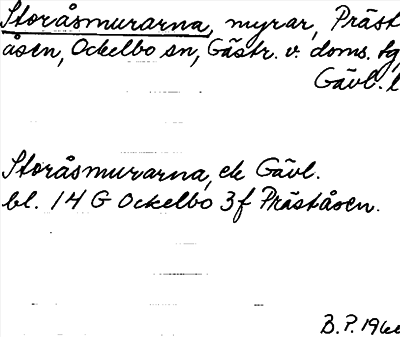 Storåsmurarna, myrar, Präst
åsen, Ockelbo sn, Gästr. v. doms. tg,
Gävl. l
Storåsmurarna, ek Gävl.
bl. 14 G Ockelbo 3f Präståsen.
B.P. 196